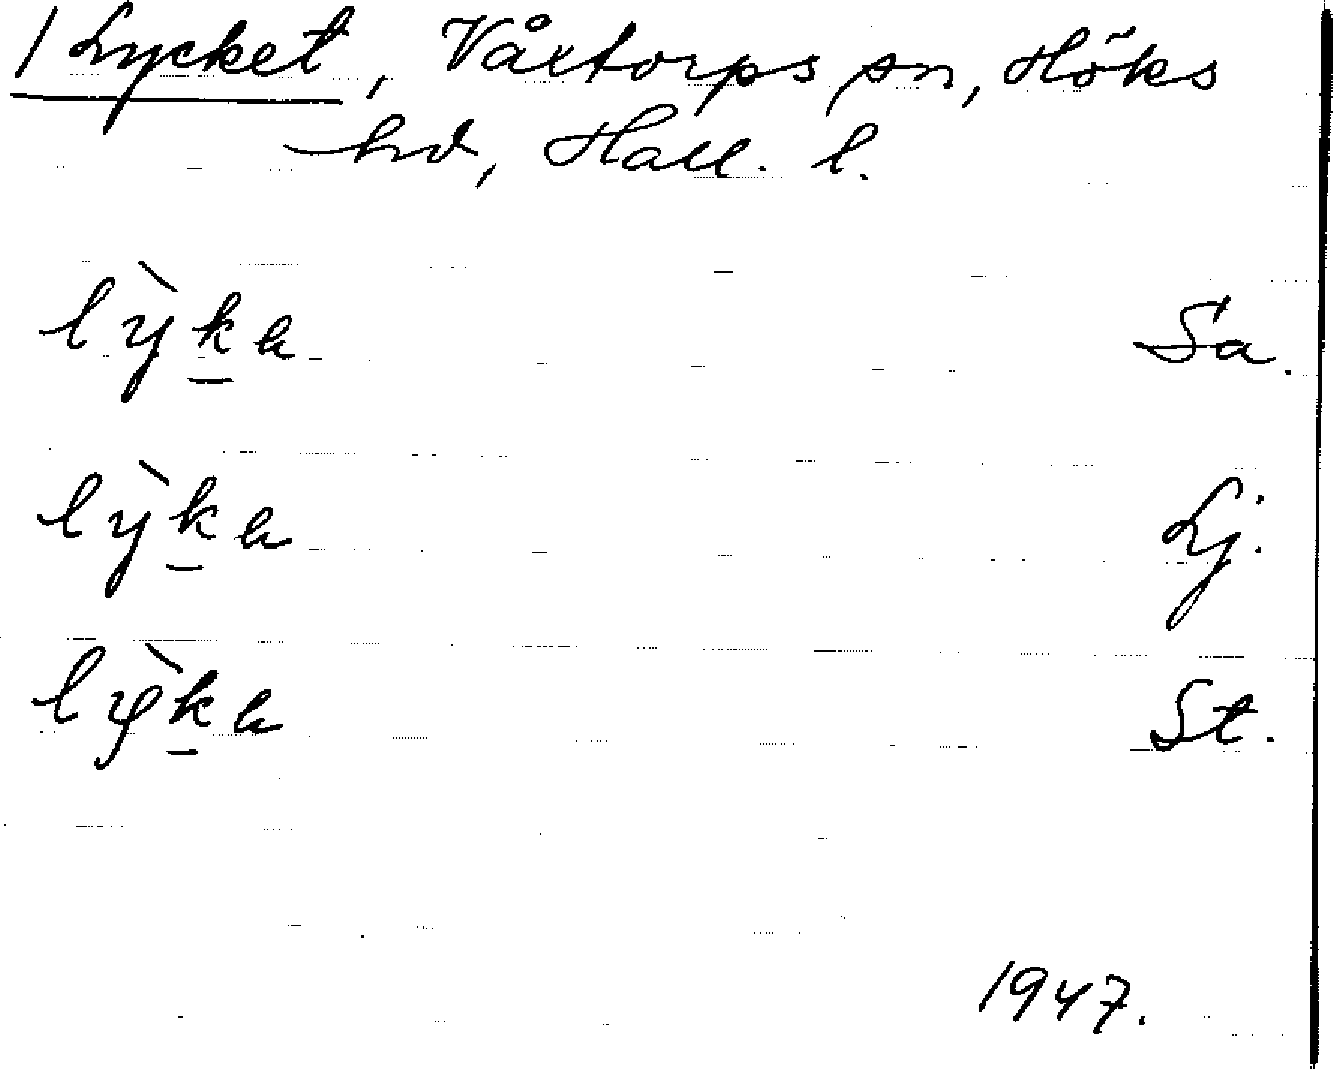 / Lycket, Våxtorps sn, Höks
hd, Hall. l.
lỳka Sa.
lỳka Lj.
lỳka St.
1947.